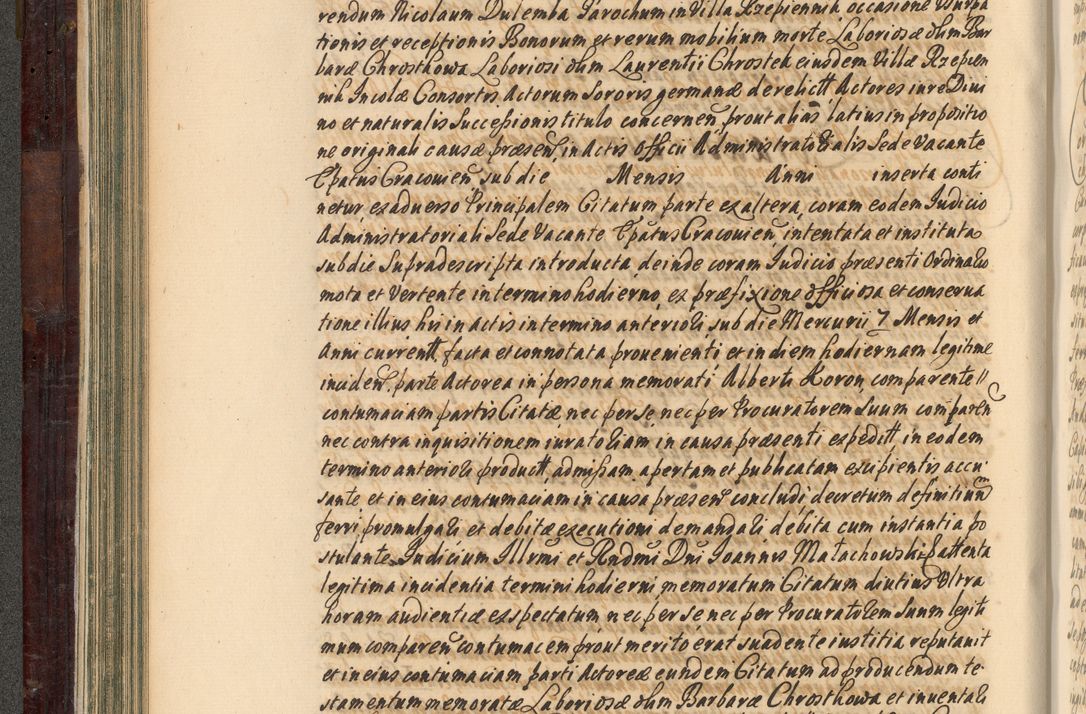 rendum Nicolaum Dulemba Parochum in Villa Rzepiennik occasione Usurpa
tionis et receptionis Bonorum et rerum mobilium morte Laboriosæ olim Bar
baræ Chrostkowa Laboriosi olim Laurentii Chrostek eiusdem Villæ Rzepien
nik Incolæ Consortis Actorum Sororis germanæ derelict. Actores iure Divi
no et naturalis Successionis titulo concernen. prout alias latius in propositio
ne originali causæ præsen. in Actis Officii Administratorialis Sede Vacante
Epatus Cracovien. sub die Mensis Anni inserta conti
netur, ex adverso Principalem Citatum parte ex altera, coram eodem Iudicio
Administratoriali Sede Vacante Epatus Cracovien. intentata et instituta
sub die Supradescripta introducta, deinde coram Iudicio præsenti Ordinario
mota et Vertente in termino hodierno, ex præfixione officiosa et conserva
tione illius hic in actis in termino anteriori, sub die Mercurii 7 Mensis et
Anni current. facta et connotata provenienti et in diem hodiernam legitime
inciden. parte Actorea in persona memorati Alberti Koron, comparente //
contumaciam partis Citatæ, nec per se, nec per Procuratorem Suum comparen
nec contra inquisitionem iuratoriam, in causa præsenti expedit. in eodem
termino anteriori product. admissam, apertam et publicatam excipientis accu
sante, et in eius contumaciam in causa præsen. concludi, decretum definitium
ferri, promulgari et debitæ executioni demandari debita cum instantia po
stulante. Iudicium Illrmi et Rndmi Dni Ioannis Małachowski, attenta
legitima incidentia termini hodierni, memoratum Citatum diutius Ultra
horam audientiæ expectatum nec per se nec per Procuratorem Suum legiti
mum comparen. contumacem prout merito erat suadente iustitia reputavit
et in eius contumaciam parti Actoreæ eundem Citatum ad producendum te
stamentum memoratæ Laboriosæ olim Barbaræ Chrostkowa et inventari